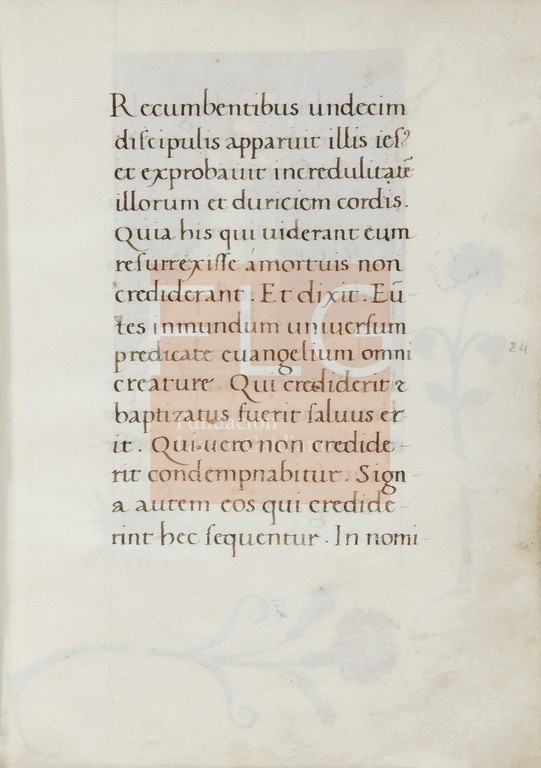 Recumbentibus undecim
diſcipulis apparuit illis ieſꝰ
et exprobauit incredulitatē
illorum et duriciem cordis.
Quia his qui uiderant eum
reſurrexiſſe amortuis non
crediderant. Et dixit. Eū
tes inmundum uniuerſum
predicate euangelium omni
creature. Qui crediderit ⁊
baptizatus fuerit ſaluus er
it. Qui uero non credide
rit condempnabitur. Sign
a autem eos qui credide
rint hec ſequentur. In nomi
24
FLG
Fundación